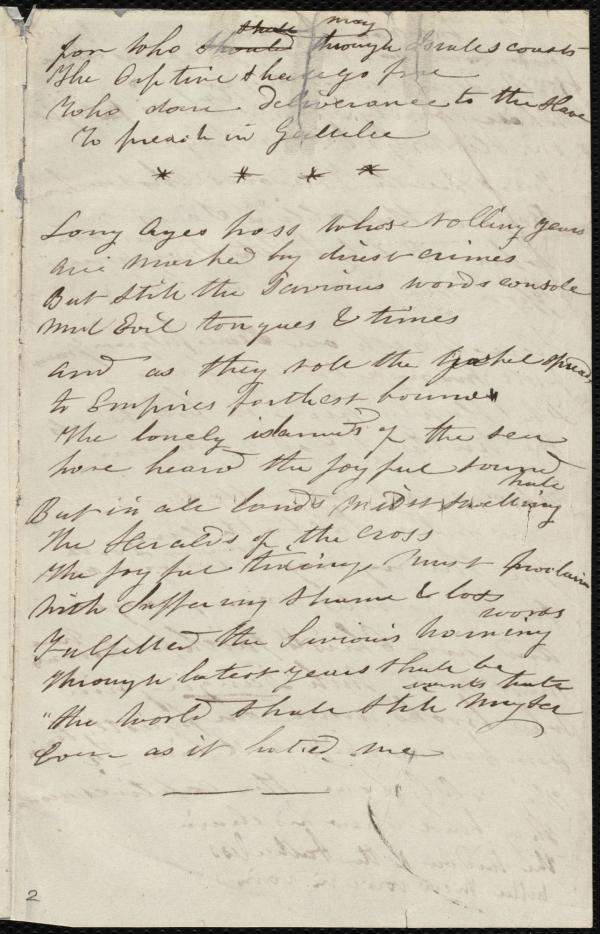 for who should shall may through Israels courts
The Captive shall go free
Who dare deliverance to the slave
To preach in Gallilee
* * * *
Long Ages pass whose rolling years
are marked by direst crimes
But still the Saviours words console
Mid Evil tongues & times
and as they roll the Gospel spreads
to Empires farthest bound
The lonely islands of the sea
have heard the joyful sound
But in all lands midst swelling hate
The Heralds of the cross
The joyful tidings must proclaim
With Suffering shame & loss
Fulfilled the Saviours warning words
Through latest years shall be
"the world shall still my servants hate
Even as it hated me
2